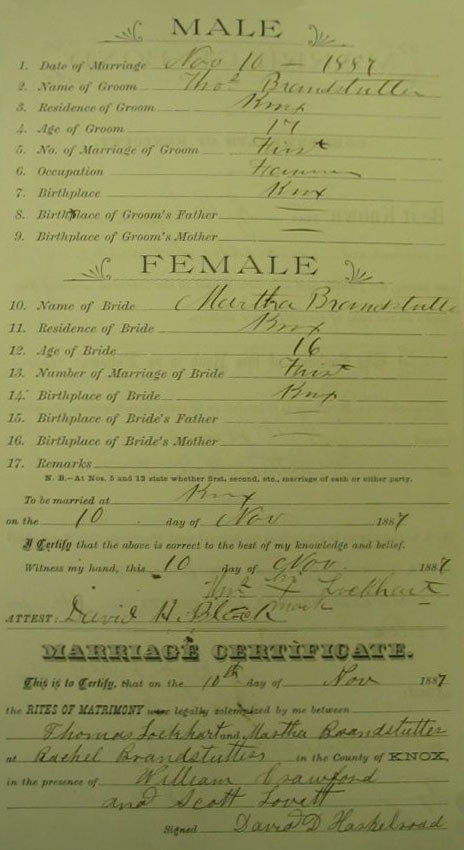 MALE
1. Date of Marriage Nov 10 - 1887
2. Name of Groom Thos Brandstutter
3. Residence of Groom Knox
4. Age of Groom 17
5. No. of Marriage of Groom First
6. Occupation Farmer
7. Birthplace Knox
8. Birthplace of Groom's Father
9. Birthplace of Groom's Mother
FEMALE
10. Name of Bride Martha Brandstutte
11. Residence of Bride Knox
12. Age of Bride 16
13. Number of Marriage of Bride First
14. Birthplace of Bride Knox
15. Birthplace of Bride's Father
16. Birthplace of Bride's Mother
17. Remarks
N. B.—At Nos. 5 and 13 state whether first, second, etc., marriage of each or either party.
To be married at Knox
on the 10 day of Nov 1887
I Certify that the above is correct to the best of my knowledge and belief.
Witness my hand, this 10 day of Nov. 1887
Thos X Lockhart
mark
ATTEST: David H. Black
MARRIAGE CERTIFICATE.
This is to Certify, that on the 10th day of Nov 1887
the RITES OF MATRIMONY were legally solemnized by me between
Thomas Lockhart and Martha Brandstutter
at Rachel Brandstutters in the County of KNOX,
in the presence of William Crawford
and Scott Lovett
Signed David D Haskelroad